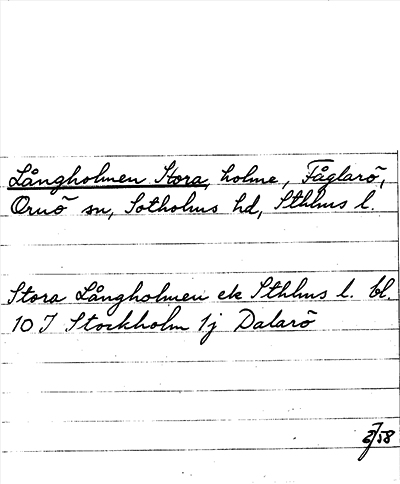 Långholmen Stora, holme, Fåglarö,
Ornö sn, Sotholms hd, Sthlms l.
Stora Långholmen ek Sthlms l. bl.
10 I Stockholm 1j Dalarö
/58